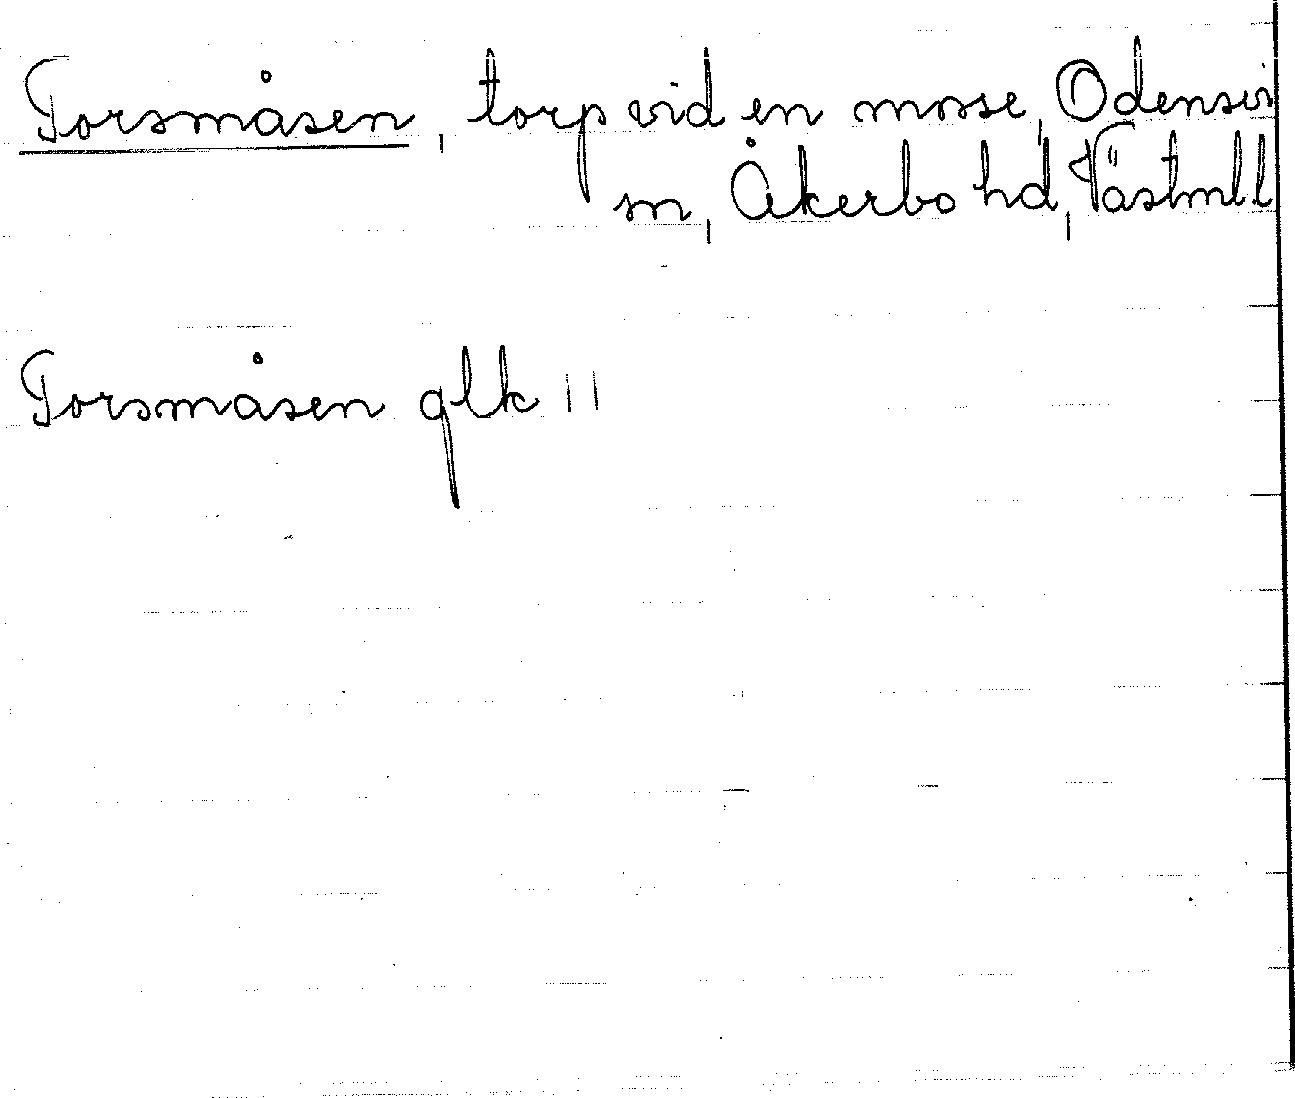 Torsmåsen, torp vid en mosse, Odensvi
sn, Åkerbo hd, Västmll
Torsmåsen glk 11